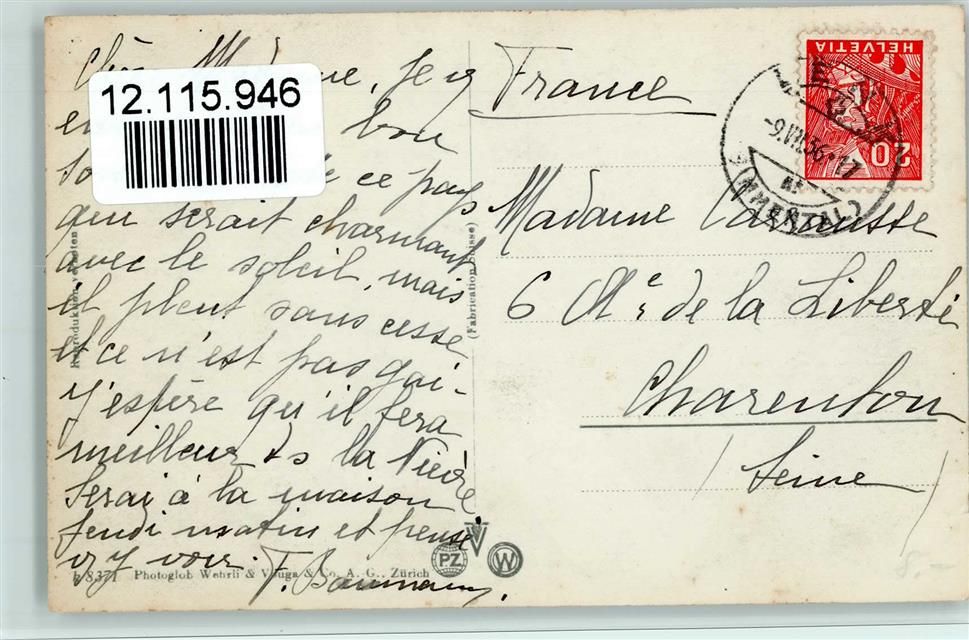 Chère Madame, Je
bon
ce pays
qui serait charmant
avec le soleil, mais
il pleut sans cesse
et ce n'est pas gai.
J'espère qu'il fera
meilleur ds la Nièvre
Serai à la maison
Jeudi matin et pense
vs y voir. F. Baumann.
12.115.946
France
Madame
6 Ale de la Liberté
Charenton
(Seine)
HELVETIA
20
-9.VII.36-17
(SIMMENTAL)
Reproduktion verboten
(Fabrication Suisse)
8371 Photoglob Wehrli & Vouga & Co. A. G., Zürich
PZ
V
W
8.-